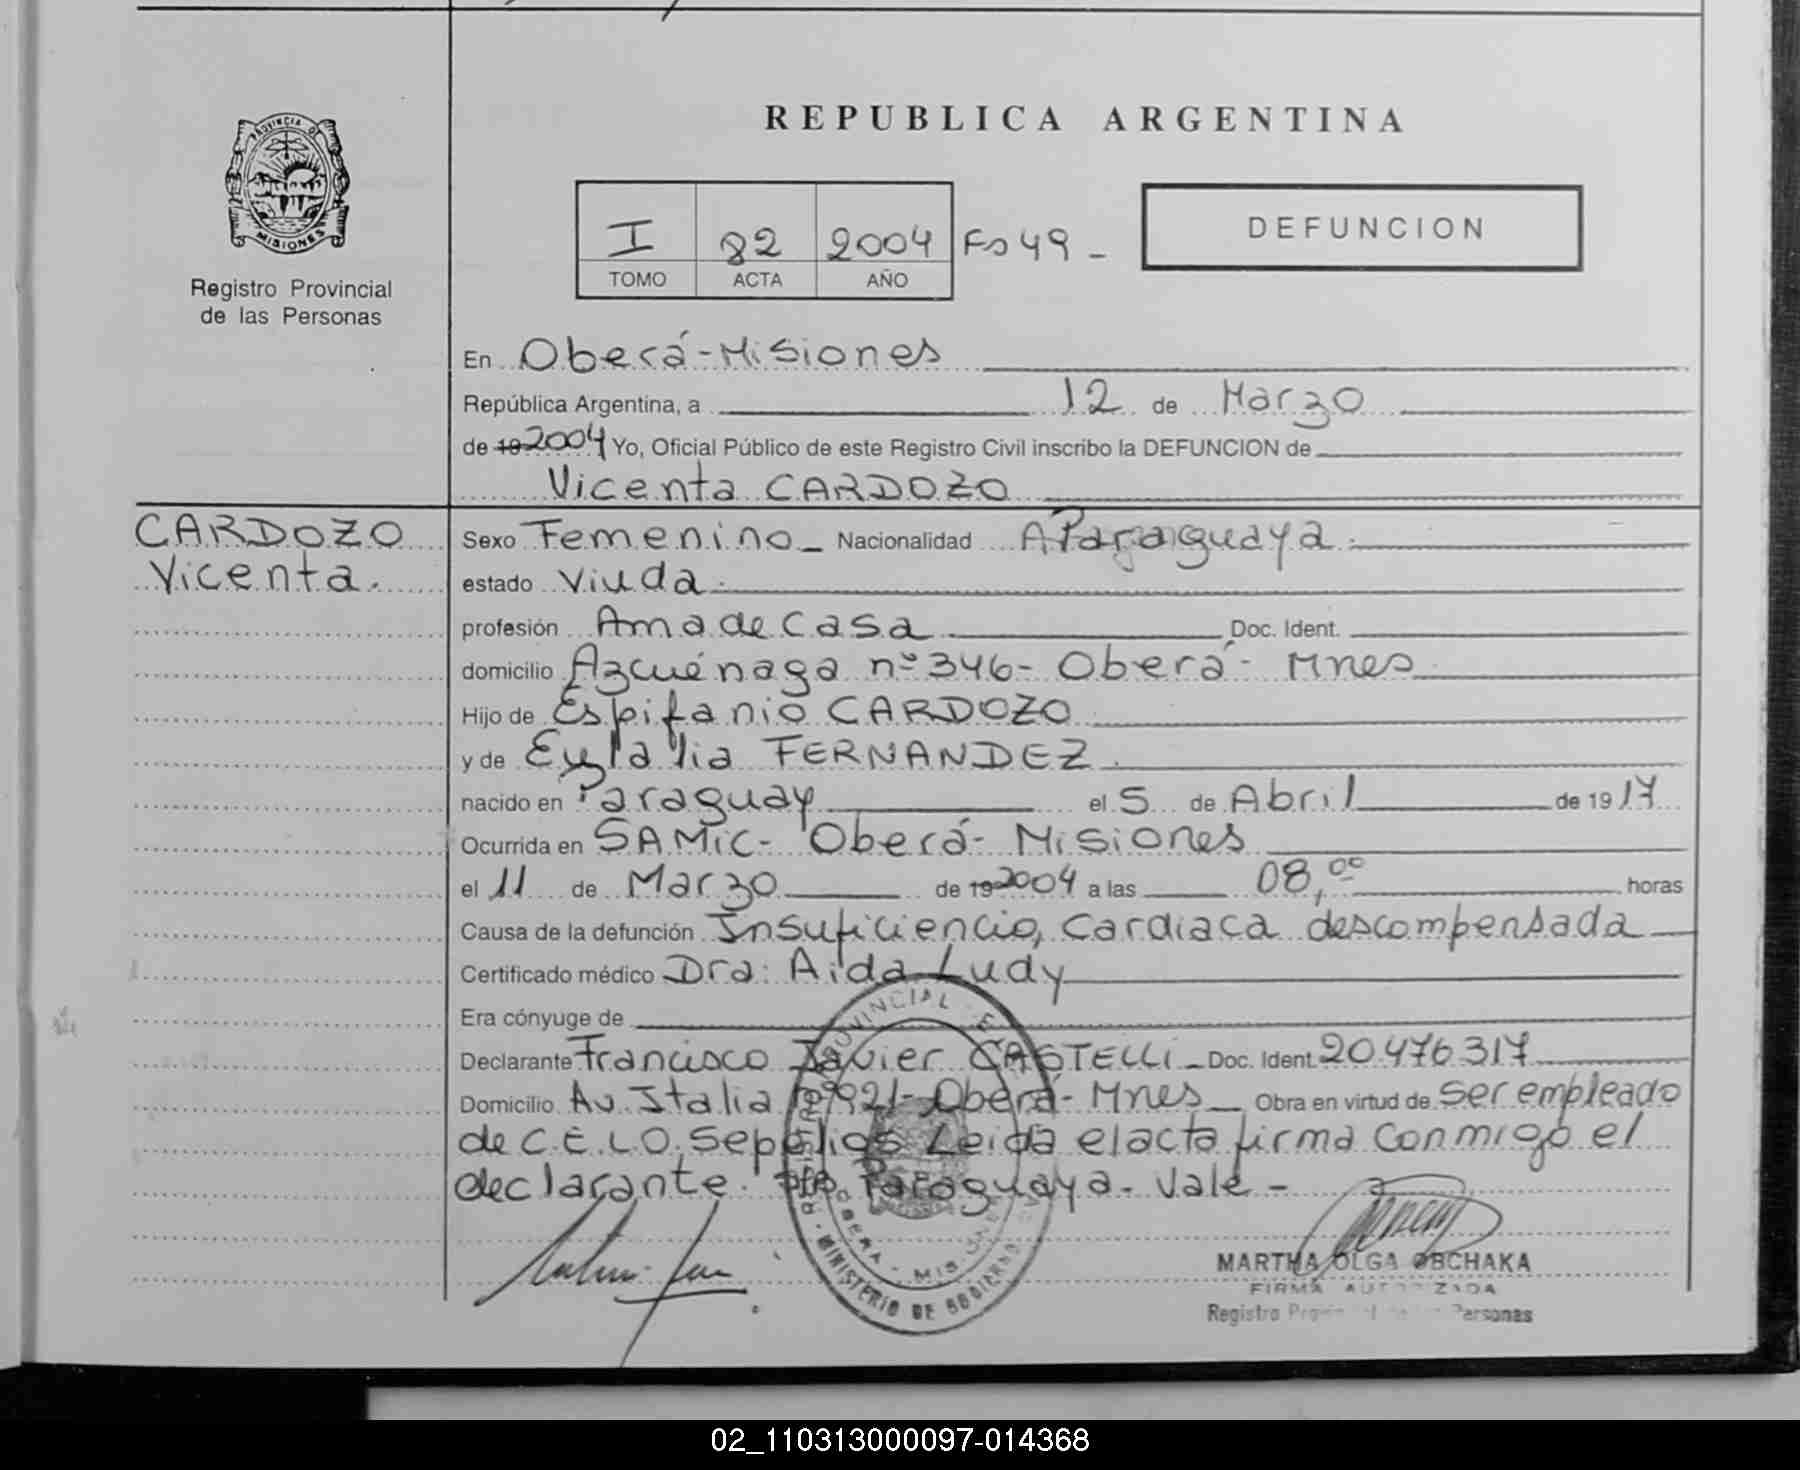 REPUBLICA ARGENTINA
PROVINCIA DE
MISIONES
Registro Provincial
de las Personas
I 82 2004 Fo 49 -
TOMO ACTA AÑO
DEFUNCION
En Oberá - Misiones
República Argentina, a 12 de Marzo
de 19 2004 Yo, Oficial Público de este Registro Civil inscribo la DEFUNCION de
Vicenta CARDOZO
CARDOZO
Vicenta.
Sexo Femenino - Nacionalidad Paraguaya.
estado Viuda.
profesión Ama de Casa Doc. Ident.
domicilio Azcuénaga nº 346 - Oberá - Mnes
Hijo de Espifanio CARDOZO
y de Eulalia FERNANDEZ.
nacido en Paraguay el 5 de Abril de 19 17
Ocurrida en SAMIC - Oberá - Misiones
el 11 de Marzo de 19 2004 a las 08,00 horas
Causa de la defunción Insuficiencia, Cardiaca descompensada
Certificado médico Dra: Aida Ludy
Era cónyuge de
Declarante Francisco Javier CASTELLI - Doc. Ident. 20.476.317
Domicilio Av. Italia nº 921 - Oberá - Mnes - Obra en virtud de ser empleado
de C.E.L.O. Sepelios Leida el acta firma conmigo el
declarante. Paraguaya - Vale -
MARTHA OLGA OBCHAKA
FIRMA AUTORIZADA
Registro Provincial de las Personas
MINISTERIO DE GOBIERNO
02_110313000097-014368